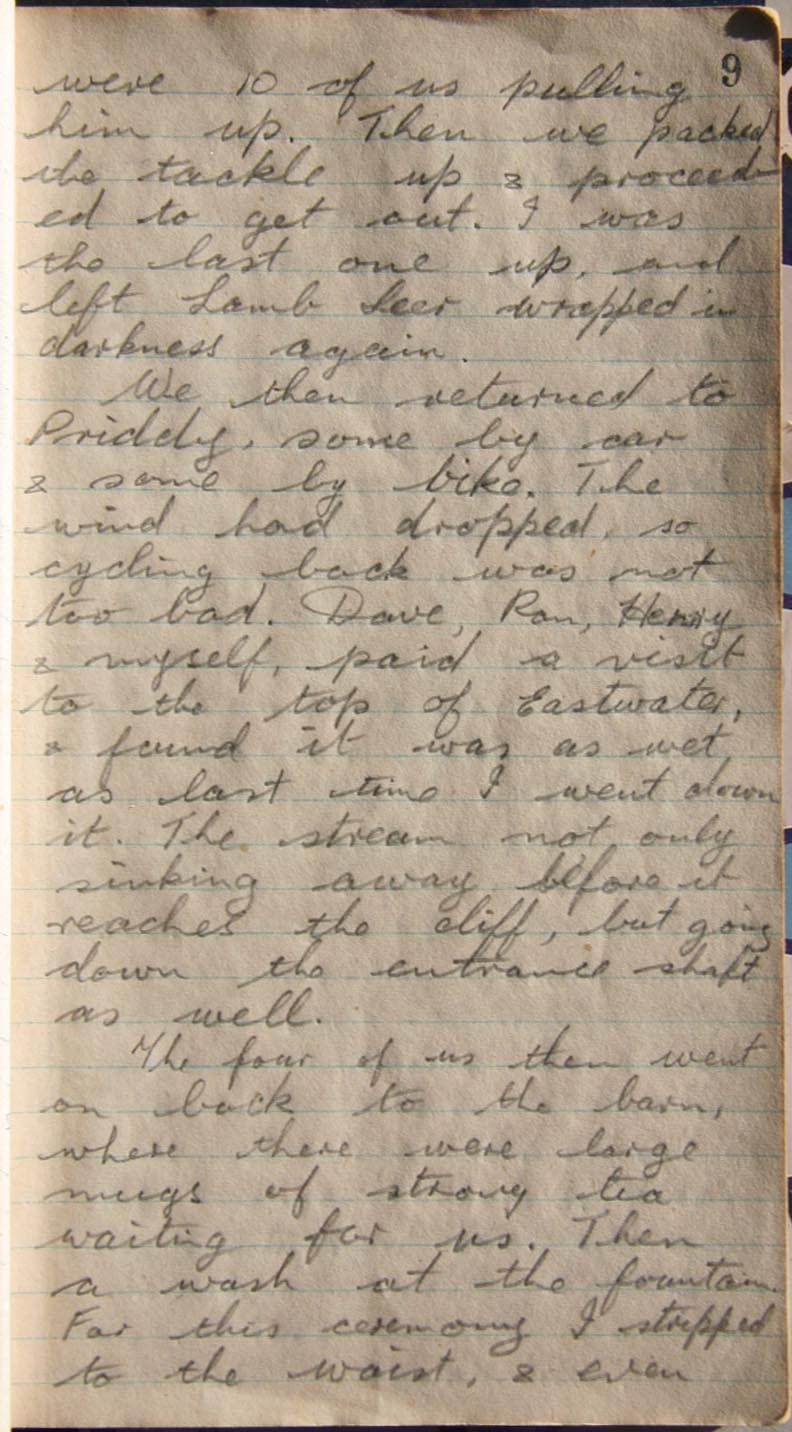 9
were 10 of us pulling
him up. Then we packed
the tackle up & proceed-
ed to get out. I was
the last one up, and
left Lamb Leer wrapped in
darkness again.
We then returned to
Priddy, some by car
& some by bike. The
wind had dropped, so
cycling back was not
too bad. Dave, Ron, Henry
& myself, paid a visit
to the top of Eastwater,
& found it was as wet
as last time I went down
it. The stream not only
sinking away before it
reaches the cliff, but going
down the entrance shaft
as well.
The four of us then went
on back to the barn,
where there were large
mugs of strong tea
waiting for us. Then
a wash at the fountain.
For this ceremony I stripped
to the waist, & even